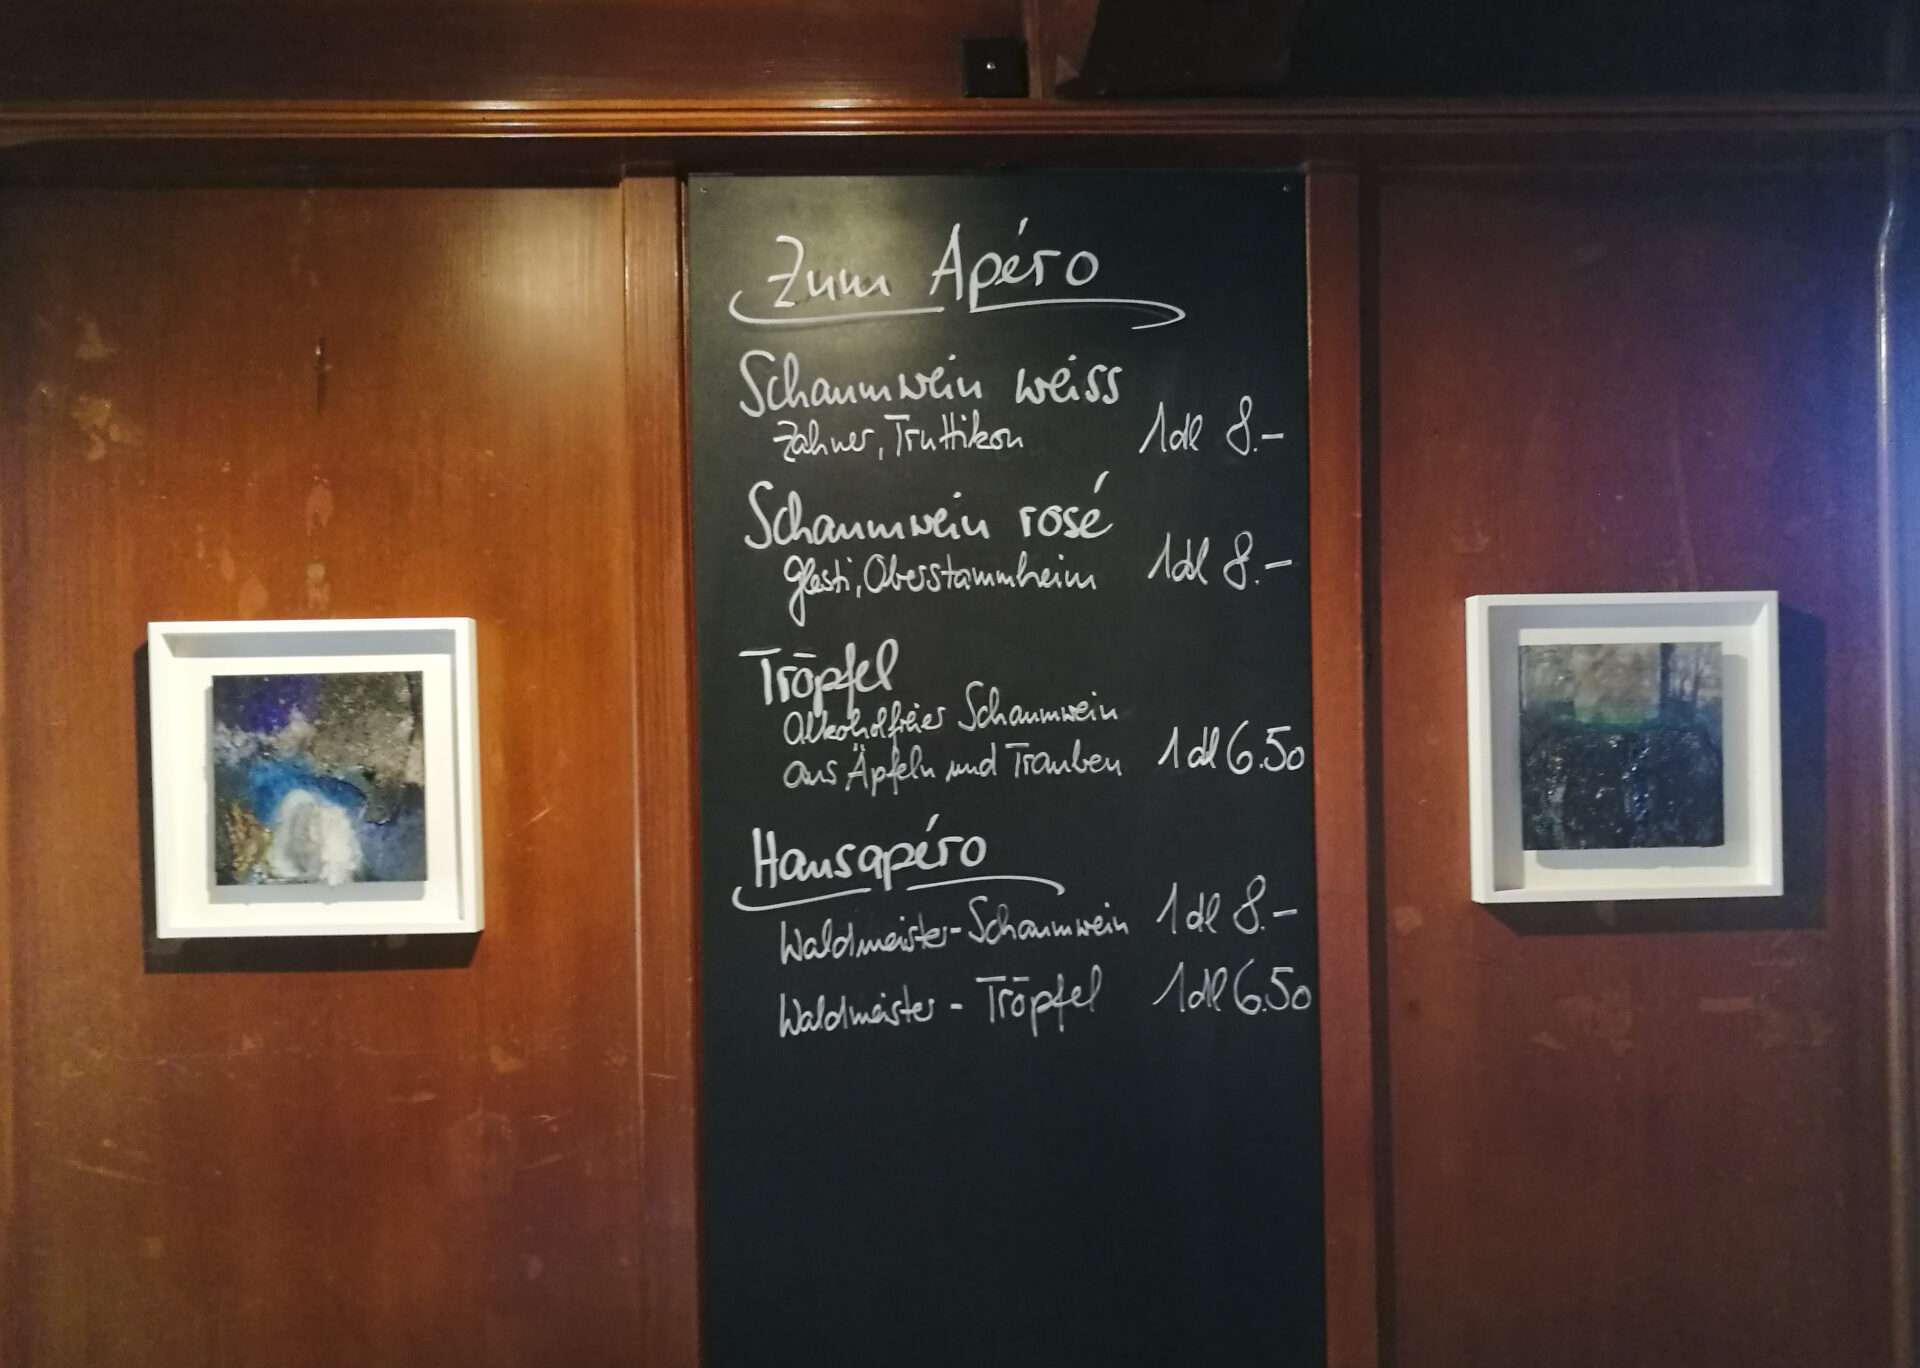 Zum Apéro
Schaumwein weiss
Zahner, Truttikon 1dl 8.–
Schaumwein rosé
Glesti, Oberstammheim 1dl 8.–
Tröpfel
Alkoholfreier Schaumwein
aus Äpfeln und Trauben 1dl 6.50
Hausapéro
Waldmeister-Schaumwein 1dl 8.–
Waldmeister - Tröpfel 1dl 6.50